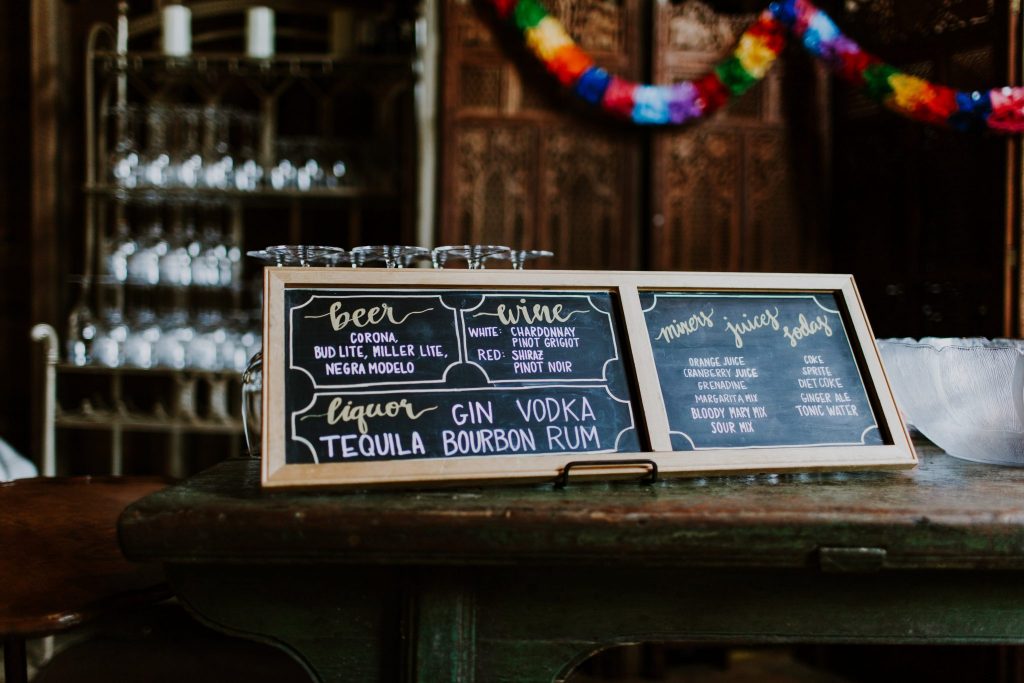 beer
CORONA,
BUD LITE, MILLER LITE,
NEGRA MODELO
wine
WHITE: CHARDONNAY
PINOT GRIGIOT
RED: SHIRAZ
PINOT NOIR
liquor GIN VODKA
TEQUILA BOURBON RUM
mixers juices sodas
ORANGE JUICE
CRANBERRY JUICE
GRENADINE
MARGARITA MIX
BLOODY MARY MIX
SOUR MIX
COKE
SPRITE
DIET COKE
GINGER ALE
TONIC WATER